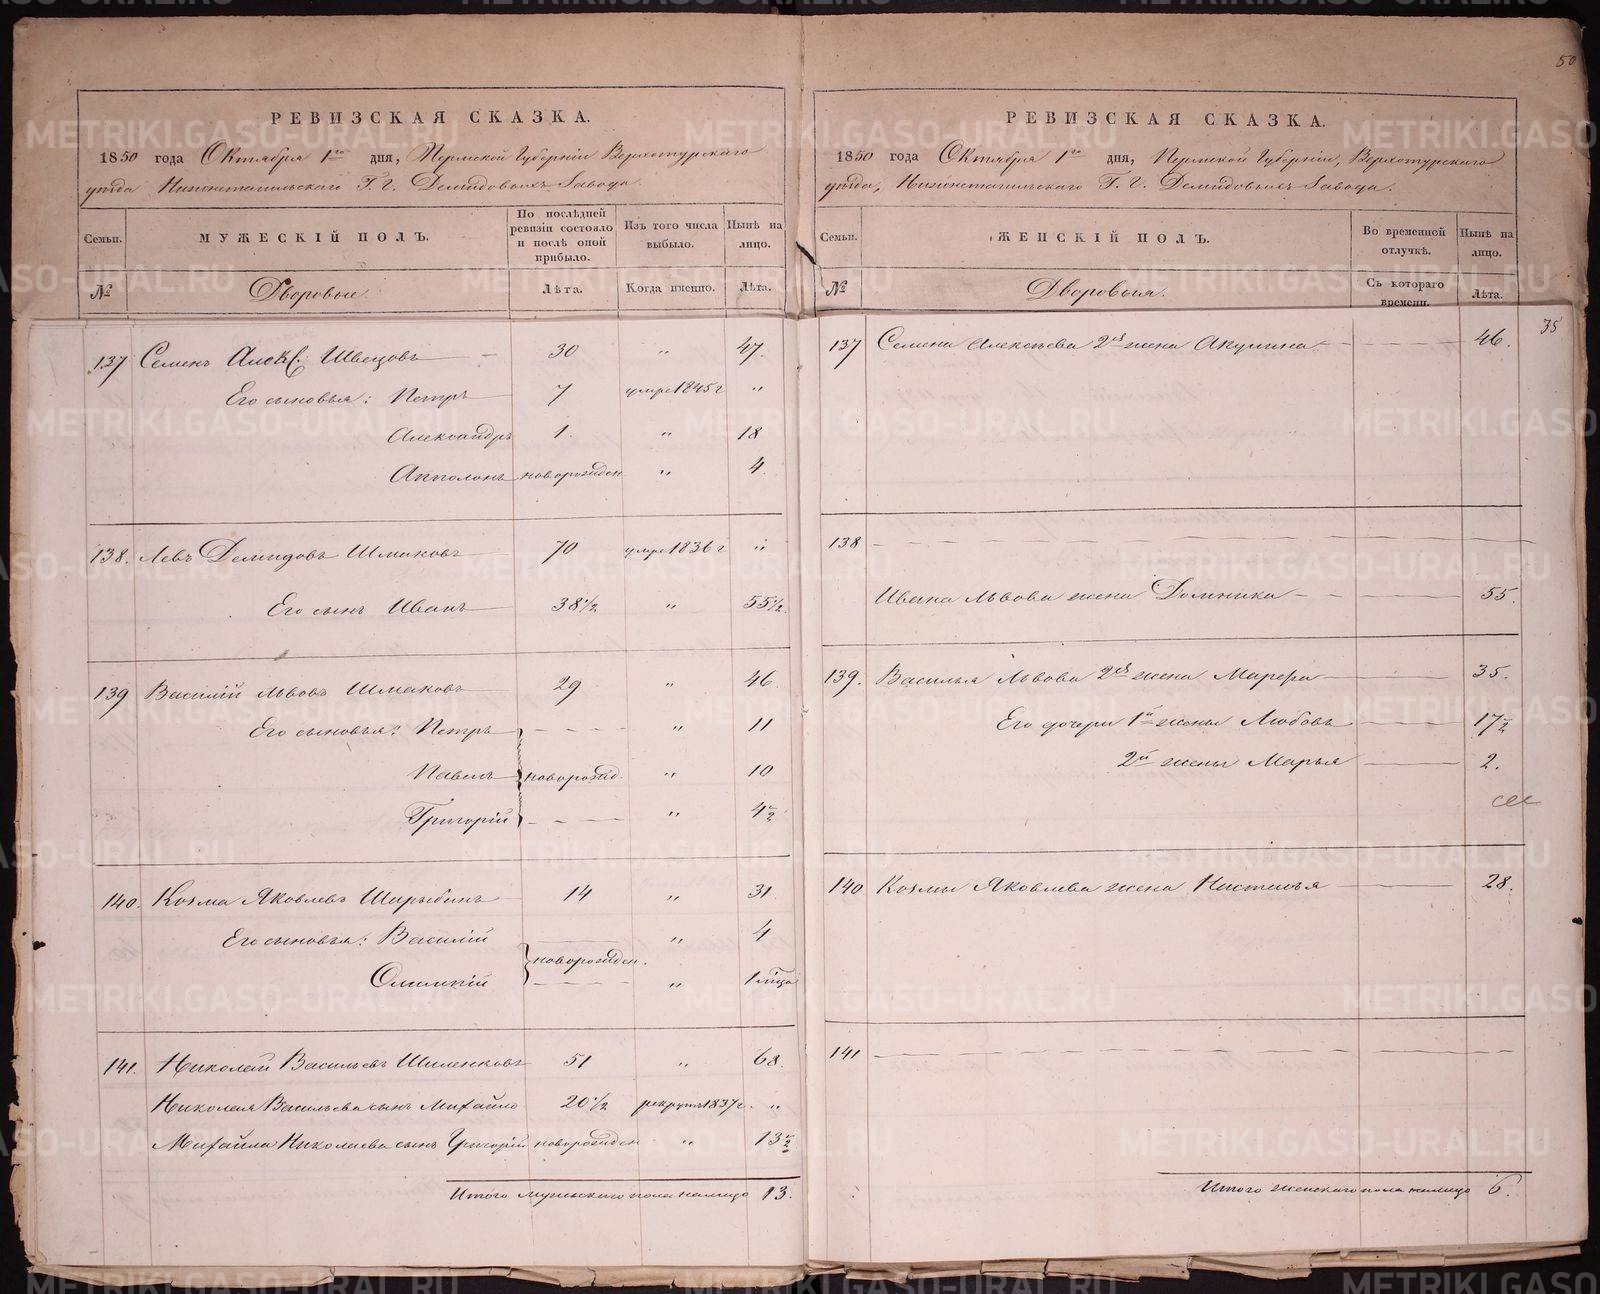 50
РЕВИЗСКАЯ СКАЗКА.
1850 года Октября 1го дня, Пермской Губерніи Верхотурскаго
уѣзда Нижнетагильскаго Г. г. Демидовыхъ Завода.
Семьи.
МУЖЕСКІЙ ПОЛЪ.
По послѣдней ревизіи состояло и послѣ оной прибыло.
Изъ того числа выбыло.
Нынѣ на лицо.
№
Дворовые
Лѣта.
Когда именно.
Лѣта.
137 Семенъ Алекс. Швецовъ 30 " 47.
Его сыновья: Петръ 7 умре 1845 г "
Александръ 1. " 18
Апполонъ новорожден " 4
138. Левъ Демидовъ Шмаковъ 70 умре 1836 г "
Его сынъ Иванъ 38 1/2 " 55 1/2
139 Василій Львовъ Шмаковъ 29 " 46
Его сыновья: Петръ " 11
Павелъ новорожд. " 10
Григорій " 4 1/2
140. Козма Яковлевъ Шарыбинъ 14 " 31
Его сыновья: Василій " 4
новорожден.
Олимпій " 1 мѣца
141. Николай Васильевъ Шиленковъ 51 " 68
Николая Васильева сынъ Михайло 20 1/2 рекрутъ 1837 г. "
Михайла Николаева сынъ Григорій новорожден " 13 1/2
Итого мужескаго пола налицо 13.
РЕВИЗСКАЯ СКАЗКА.
1850 года Октября 1го дня, Пермской Губерніи, Верхотурскаго
уѣзда, Нижнетагильскаго Г. г. Демидовыхъ Завода.
Семьи.
ЖЕНСКІЙ ПОЛЪ.
Во временной отлучкѣ.
Нынѣ на лицо.
№
Дворовыя.
Съ котораго времени.
Лѣта.
35
137 Семена Алексѣева 2ая жена Акулина 46.
138
Ивана Львова жена Домника 55.
139. Василья Львова 2ая жена Марѳра 35.
Его дочери 1й жены Любовь 17 1/2
2й жены Марья 2.
140 Козмы Яковлева жена Настасья 28.
141
Итого женскаго пола налицо 6.
METRIKI.GASO-URAL.RU